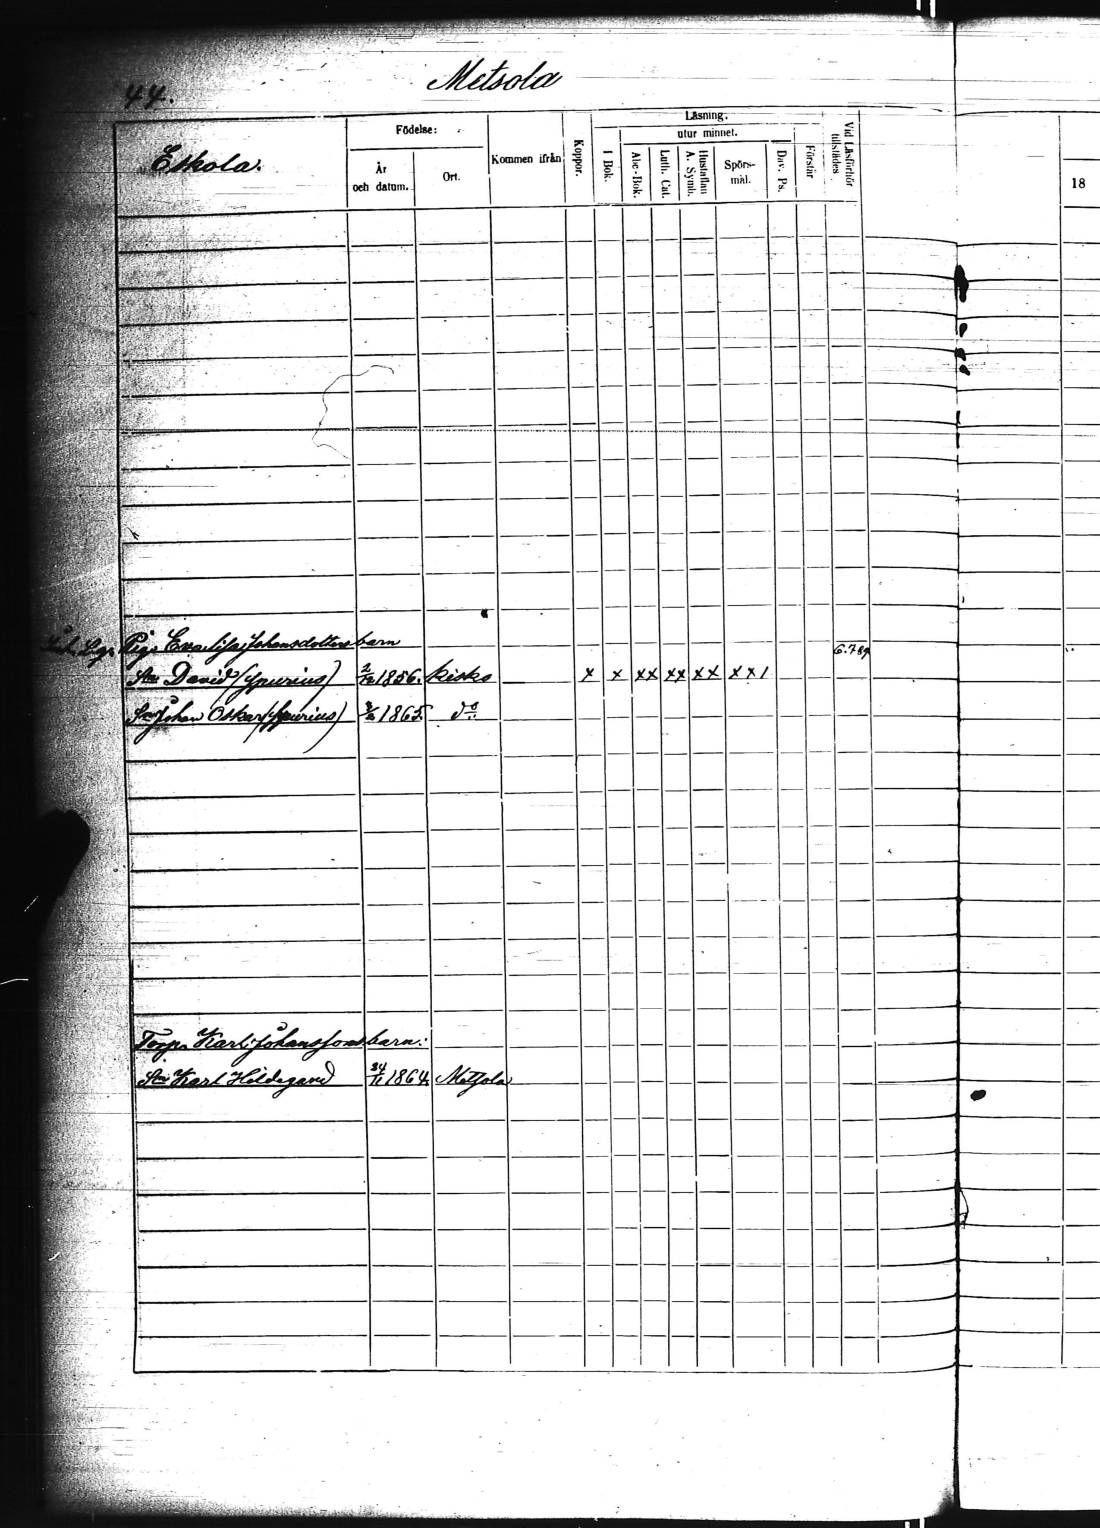 44.
Metsola
Eskola.
Födelse:
År och datum.
Ort.
Kommen ifrån
Koppor.
Läsning.
I Bok.
utur minnet.
Abc-Bok.
Luth. Cat.
Hustaflan A. Symb.
Spörsmål.
Dav. Ps.
Förstår
Vid Läsförhör tillstädes
18
Pig. Eva Lisa Johansdotters barn
6. 7 8 9
Son David (spurius) 1856. Kisko x x xx xx xx xx1
Son Johan Oskar (spurius) 1865. do
Torp. Karl Johanssons barn:
Son Karl Hildegard 24/11 1864. Metsola